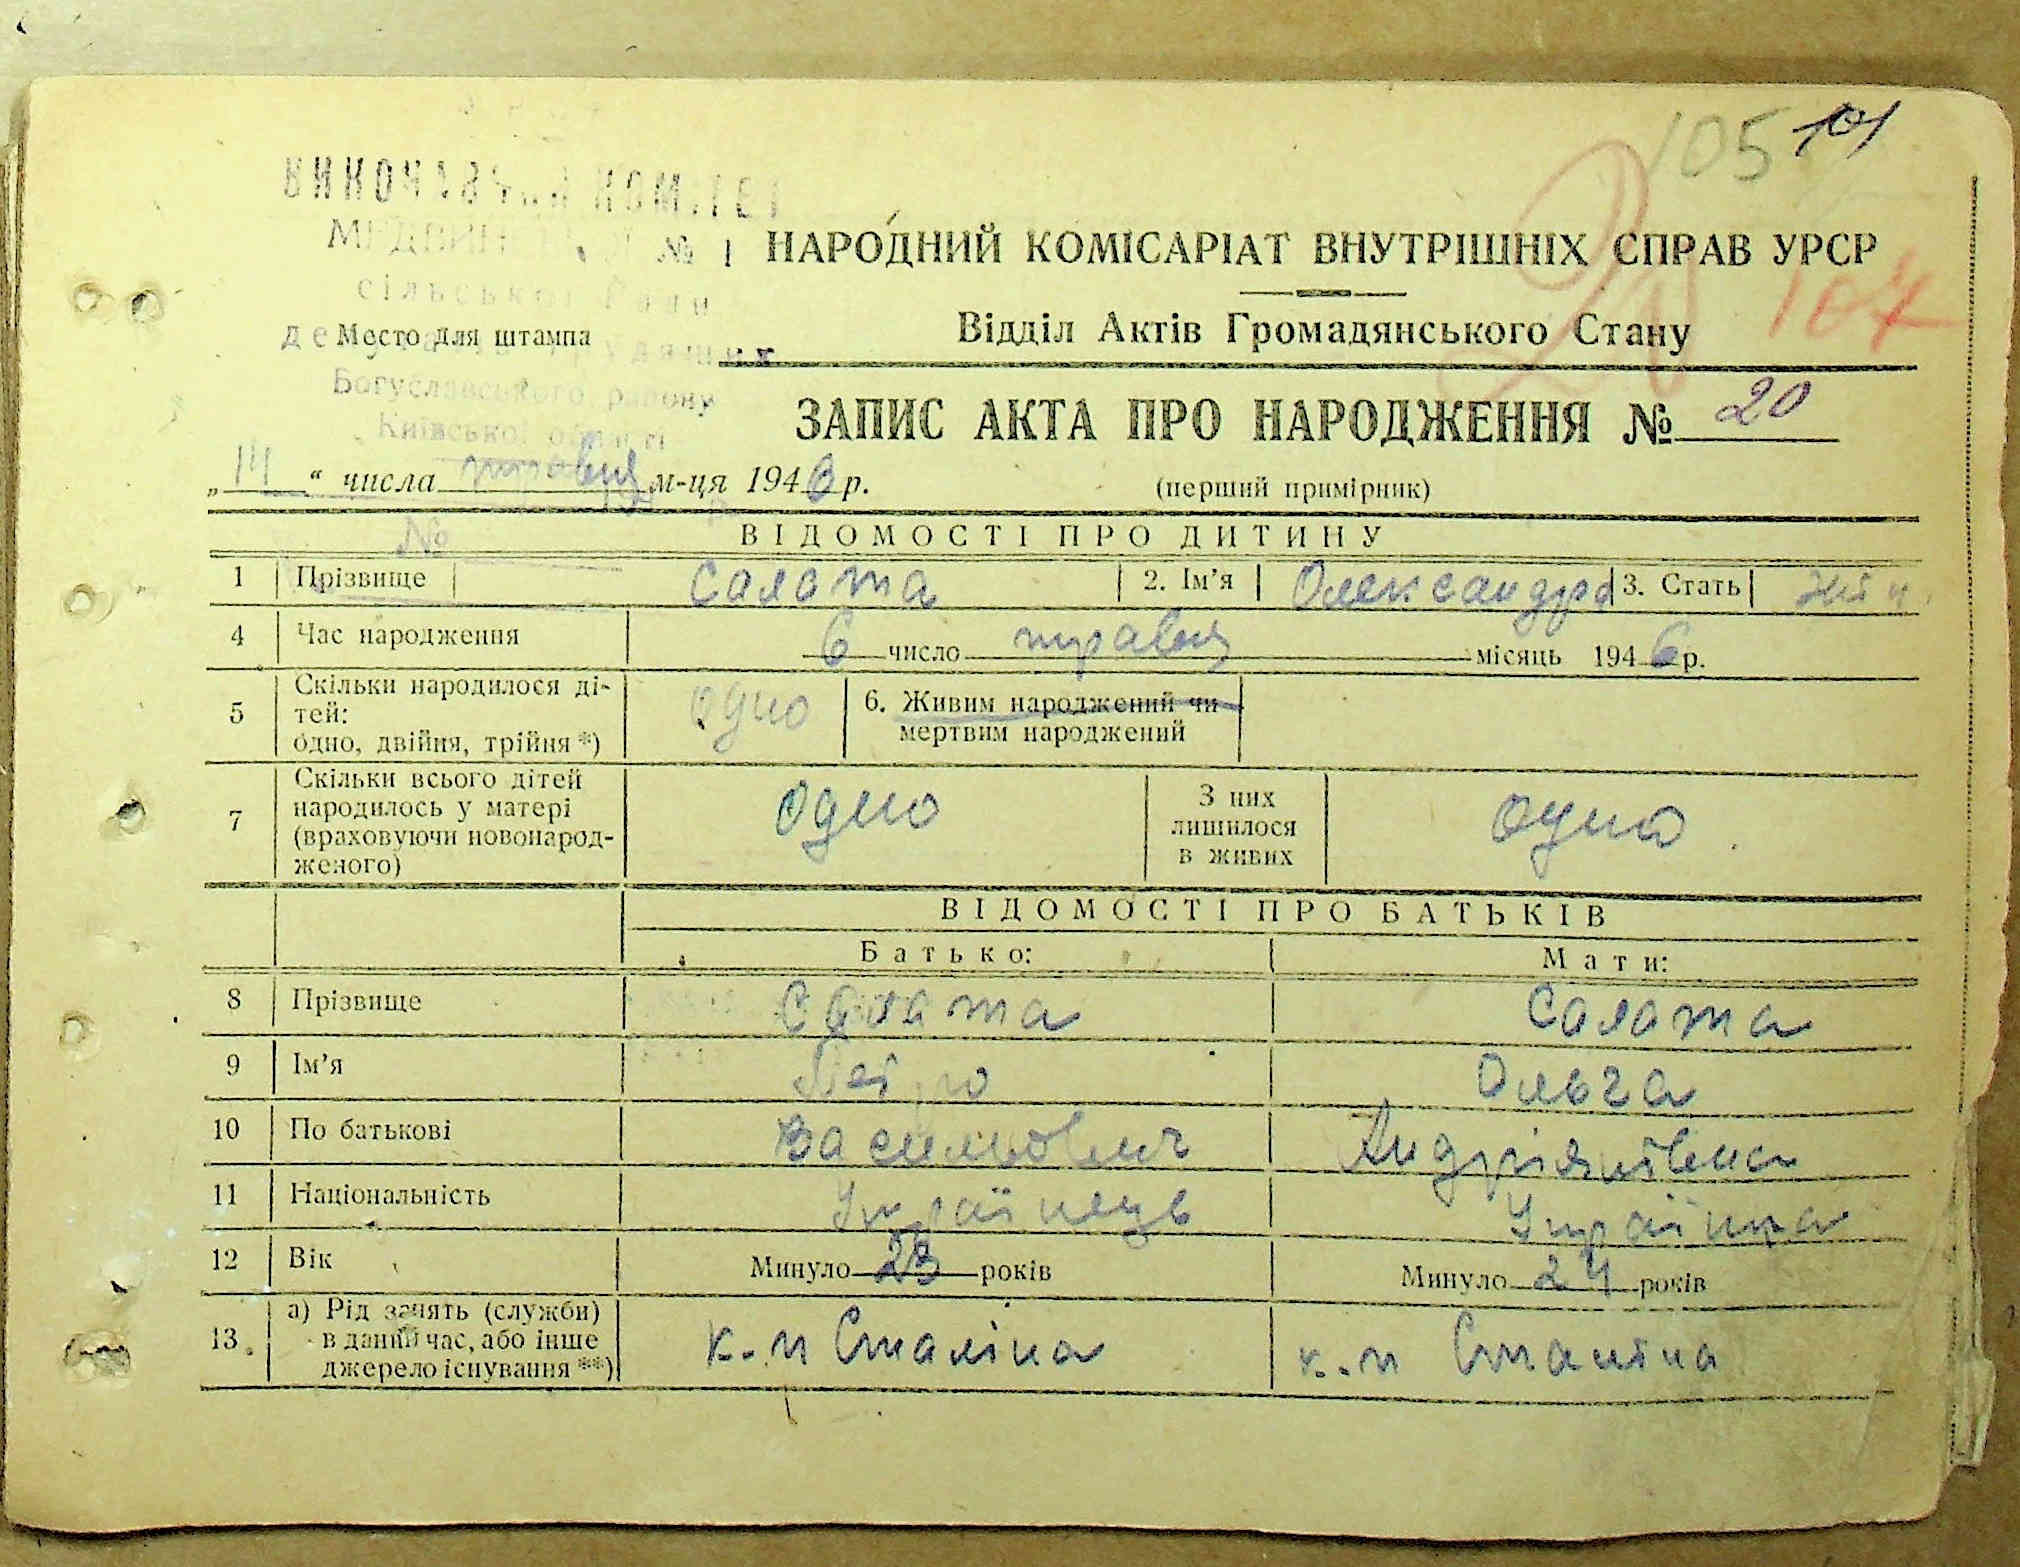 105 101
ВИКОНАВЧИЙ КОМІТЕТ
МЕДВИН № 1 НАРОДНИЙ КОМІСАРІАТ ВНУТРІШНІХ СПРАВ УРСР
20 107
сільської Ради
Место для штампа Відділ Актів Громадянського Стану
Богуславського району
Київської області
ЗАПИС АКТА ПРО НАРОДЖЕННЯ № 20
„14“ числа травня м-ця 1946 р. (перший примірник)
№
ВІДОМОСТІ ПРО ДИТИНУ
1 Прізвище Салата 2. Ім’я Олександра 3. Стать жін.
4 Час народження 6 число травня місяць 1946 р.
5 Скільки народилося ді-
тей:
одно, двійня, трійня *) одно 6. Живим народжений чи
мертвим народжений
7 Скільки всього дітей
народилось у матері
(враховуючи новонарод-
женого) Одно З них
лишилося
в живих одно
ВІДОМОСТІ ПРО БАТЬКІВ
Батько: Мати:
8 Прізвище Салата Салата
9 Ім’я Петро Ольга
10 По батькові Васильович Андріянівна
11 Національність Українець Українка
12 Вік Минуло 23 років Минуло 24 років
13. а) Рід занять (служби)
в даний час, або інше
джерело існування **) к-п Сталіна к-п Сталіна